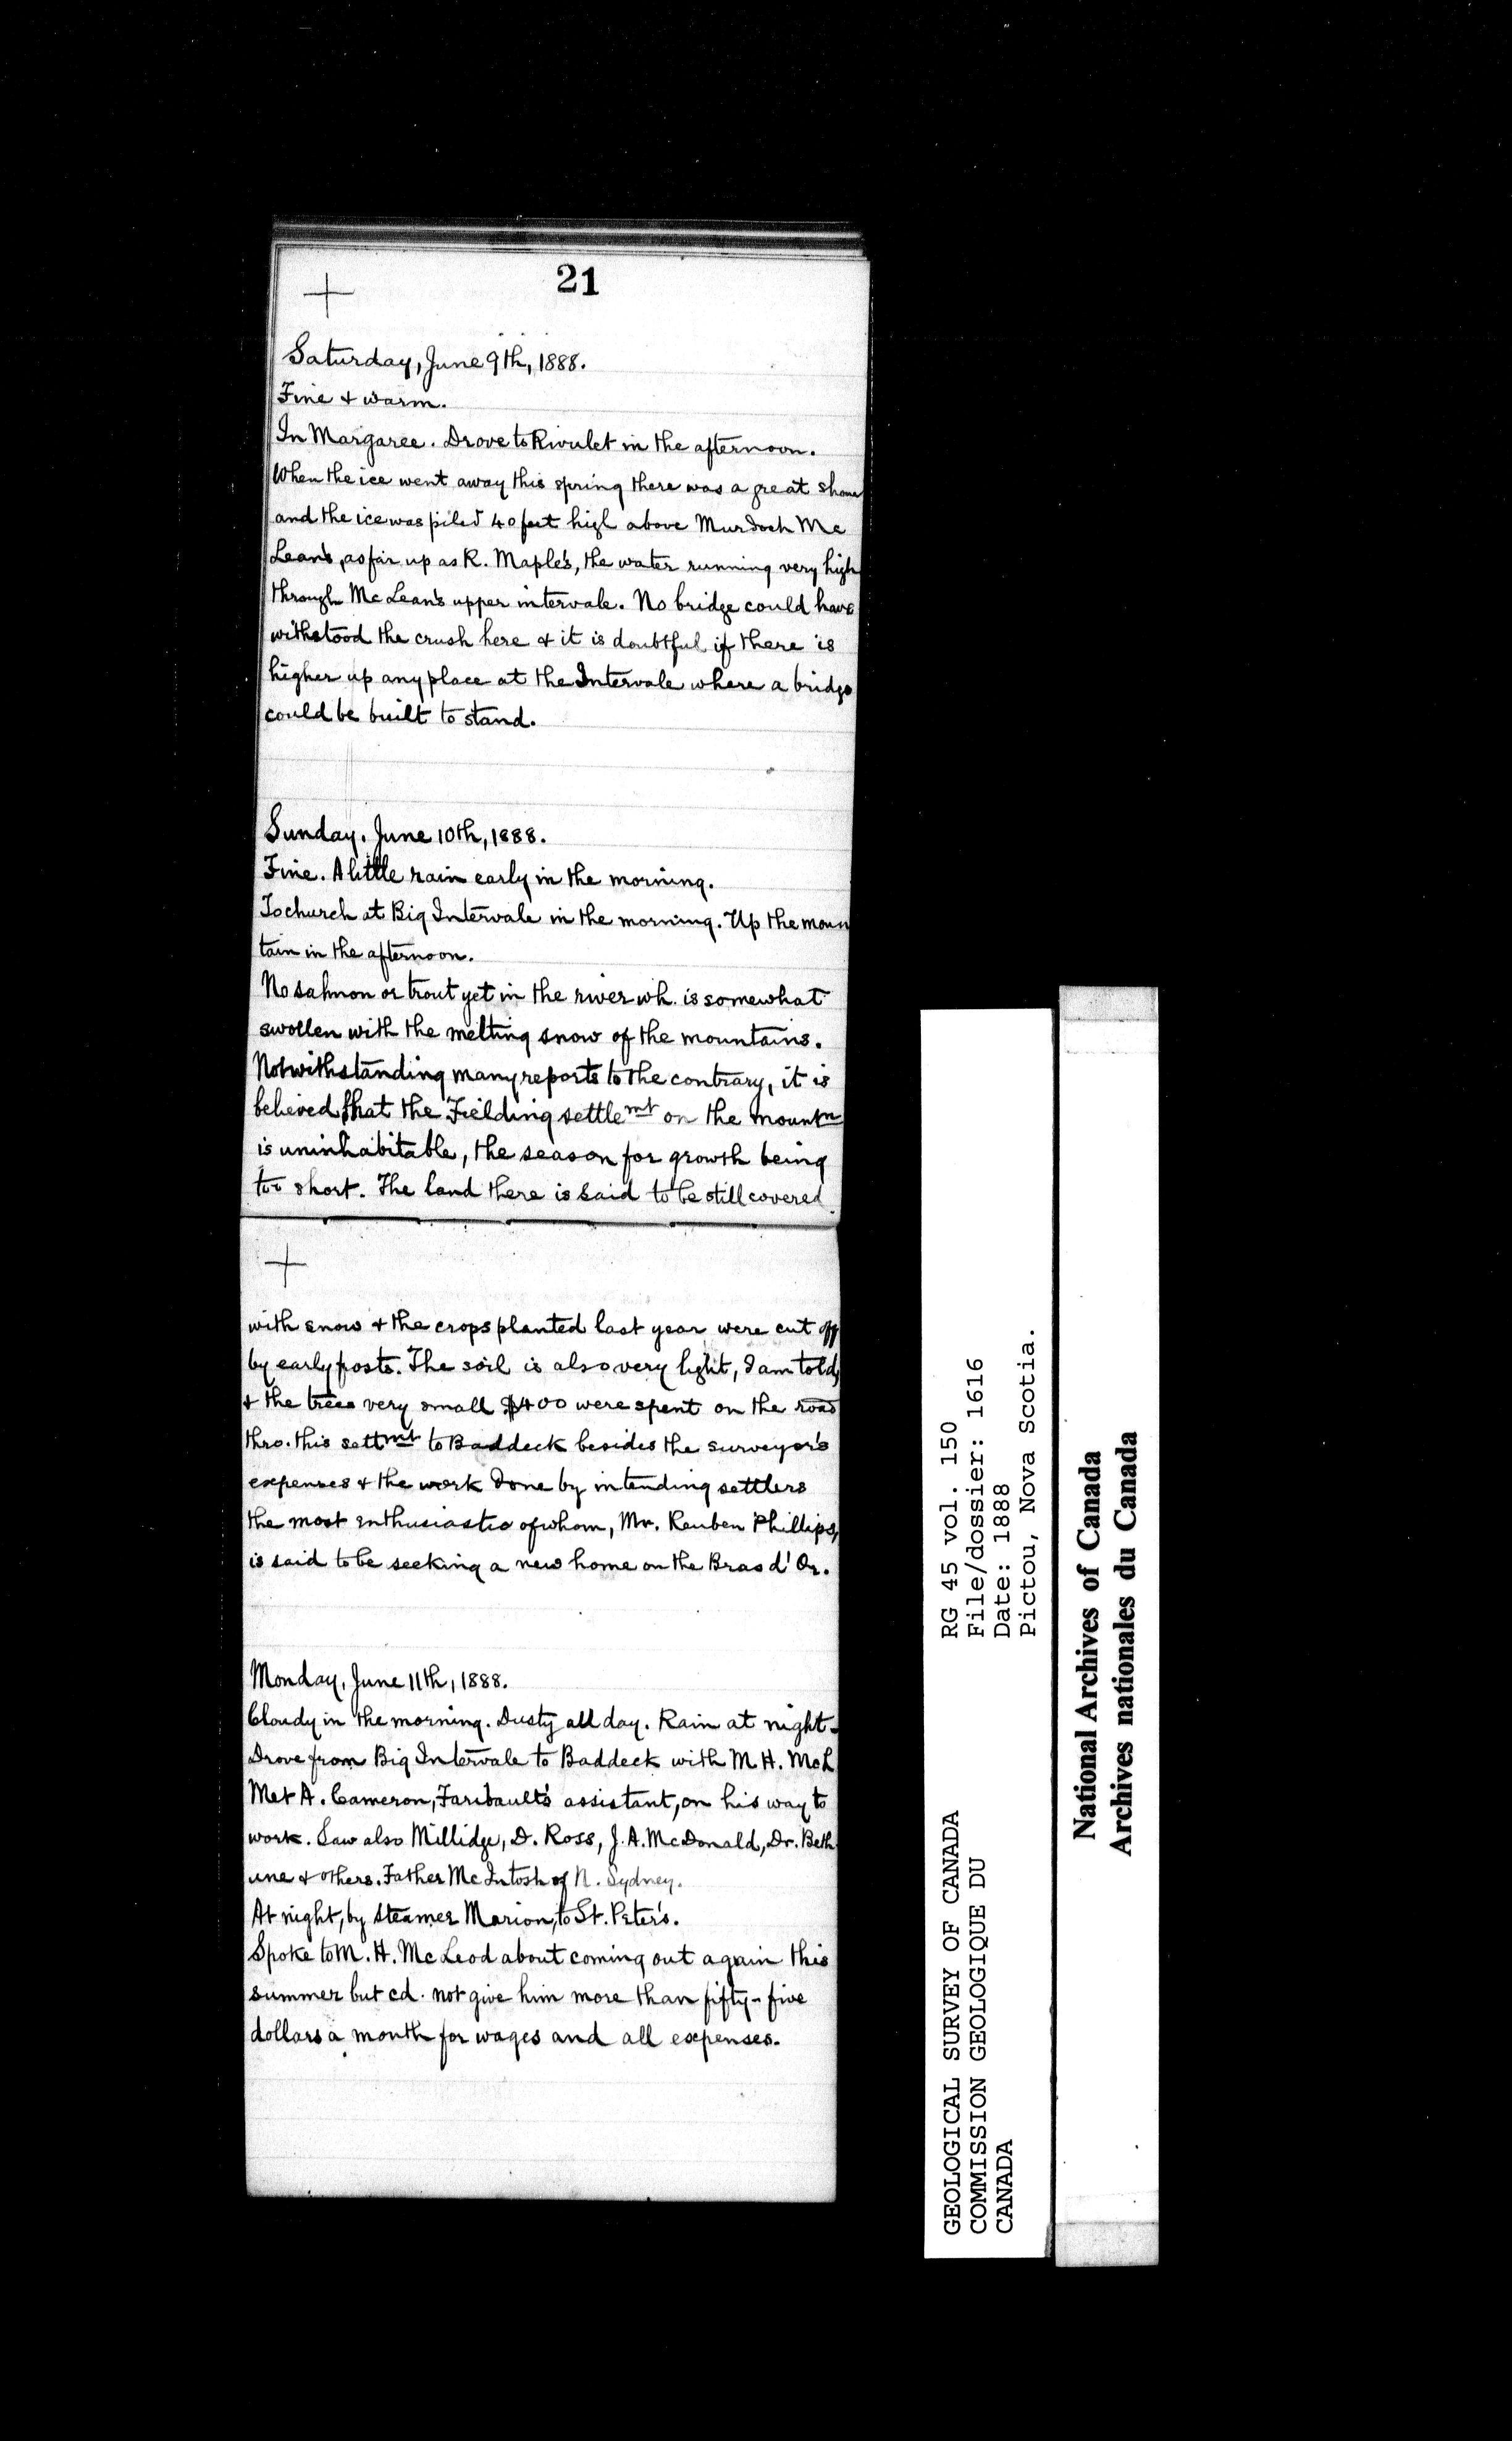 21
Saturday, June 9th, 1888.
Fine & warm.
In Margaree. Drove to Rivulet in the afternoon.
When the ice went away this spring there was a great
and the ice was piled 40 feet high above Murdoch Mc
Lean's, as far up as R. Maple's, the water running very high
through McLean's upper intervale. No bridge could have
withstood the crush here & it is doubtful if there is
higher up any place at the Intervale where a bridge
could be built to stand.
Sunday. June 10th, 1888.
Fine. A little rain early in the morning.
To church at Big Intervale in the morning. Up the moun
tain in the afternoon.
No salmon or trout yet in the river wh. is somewhat
swollen with the melting snow of the mountains.
Notwithstanding many reports to the contrary, it is
believed that the Fielding settlemt on the mountn
is uninhabitable, the season for growth being
too short. The land there is said to be still covered
with snow & the crops planted last year were cut off
by early frosts. The soil is also very light, I am told,
& the trees very small $400 were spent on the road
thro. this settmt to Baddeck besides the surveyor's
expenses & the work done by intending settlers
the most enthusiastic of whom, Mr. Reuben Phillips,
is said to be seeking a new home on the Bras d'Or.
Monday, June 11th, 1888.
Cloudy in the morning. Dusty all day. Rain at night.
Drove from Big Intervale to Baddeck with M. H. McL
Met A. Cameron, Faribault's assistant, on his way to
work. Saw also Millidge, D. Ross, J. A. McDonald, Dr. Beth
une & others. Father McIntosh of N. Sydney.
At night, by steamer Marion, to St. Peter's.
Spoke to M. H. McLeod about coming out again this
summer but cd. not give him more than fifty-five
dollars a month for wages and all expenses.
GEOLOGICAL SURVEY OF CANADA
COMMISSION GEOLOGIQUE DU
CANADA
RG 45 vol. 150
File/dossier: 1616
Date: 1888
Pictou, Nova Scotia.
National Archives of Canada
Archives nationales du Canada